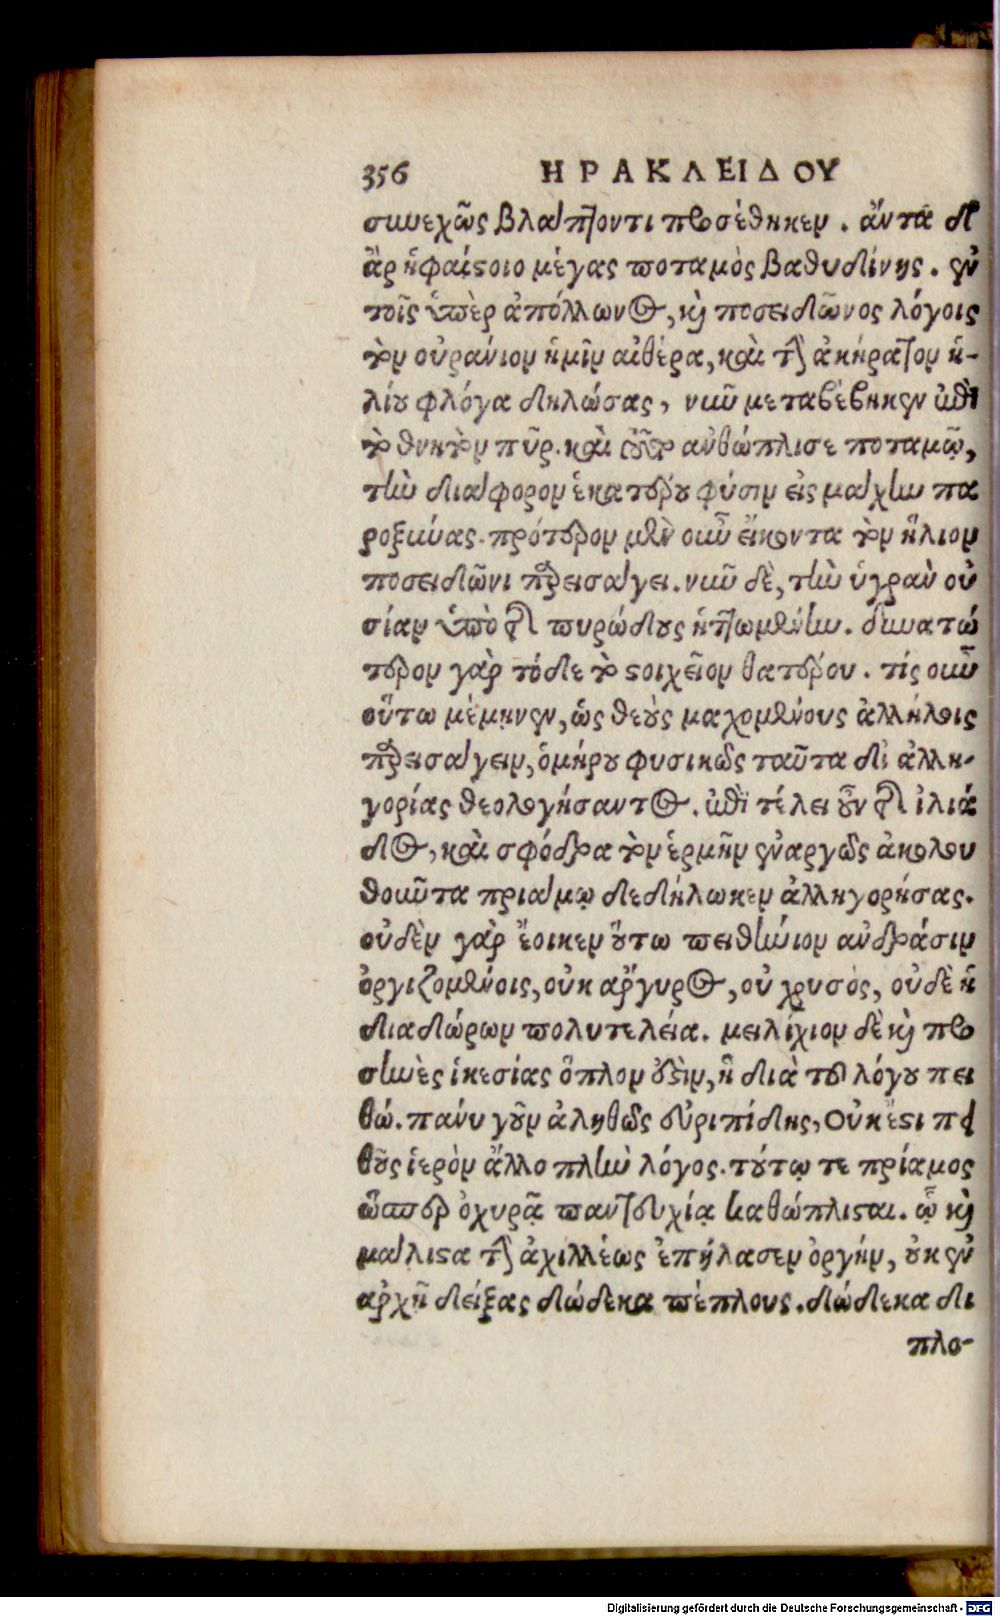 356 ΗΡΑΚΛΕΙΔΟΥ
συνεχῶς βλάπτοντι προσέθηκεν. ἄντα δ'
ἂρ ἡφαίστοιο μέγας ποταμὸς βαθυδίνης. ἐν
τοῖς ὑπὲρ ἀπόλλωνος, καὶ ποσειδῶνος λόγοις
τὸν οὐράνιον ἡμῖν αἰθέρα, καὶ τῆς ἀκήρατον ἡ-
λίου φλόγα δηλώσας, νῦν μεταβέβηκεν ἐπὶ
τὸ θνητὸν πῦρ. καὶ τοῦτο ἀνθώπλισε ποταμῷ,
τὴν διάφορον ἑκατέρου φύσιν εἰς μάχην πα
ροξύνας. πρότερον μὲν οὖν εἴκοντα τὸν ἥλιον
ποσειδῶνι παρεισάγει. νῦν δὲ, τὴν ὑγρὰν οὐ
σίαν ὑπὸ τῆς πυρώδους ἡττωμένην. δυνατώ
τερον γὰρ τόδε τὸ στοιχεῖον θατέρου. τίς οὖν
οὕτω μέμηνεν, ὡς θεοὺς μαχομένους ἀλλήλοις
παρεισάγειν, ὁμήρου φυσικῶς ταῦτα δι' ἀλλη-
γορίας θεολογήσαντος. ἐπὶ τέλει γοῦν τῆς ἰλιά
δος, καὶ σφόδρα τὸν ἑρμῆν ἐναργῶς ἀκολου
θοῦντα πριάμῳ δεδήλωκεν ἀλληγορήσας.
οὐδὲν γὰρ ἔοικεν οὕτω πειθήνιον ἀνδράσιν
ὀργιζομένοις, οὐκ ἄργυρος, οὐ χρυσὸς, οὐδὲ ἡ
διαδώρων πολυτελεία. μειλίχιον δὲ καὶ προ
σηνὲς ἱκεσίας ὅπλον ἐστὶν, ἡ διὰ τοῦ λόγου πει
θώ. πάνυ γοῦν ἀληθῶς εὐριπίδης, Οὐκ ἔστι πει
θοῦς ἱερὸν ἄλλο πλὴν λόγος. τούτῳ τε πρίαμος
ὥσπερ ὀχυρᾷ παντευχίᾳ καθώπλισται. ᾧ καὶ
μάλιστα τῆς ἀχιλλέως ἐπήλασεν ὀργήν, οὐκ ἐν
ἀρχῇ δείξας δώδεκα πέπλους. δώδεκα δι
πλο-
Digitalisierung gefördert durch die Deutsche Forschungsgemeinschaft - DFG